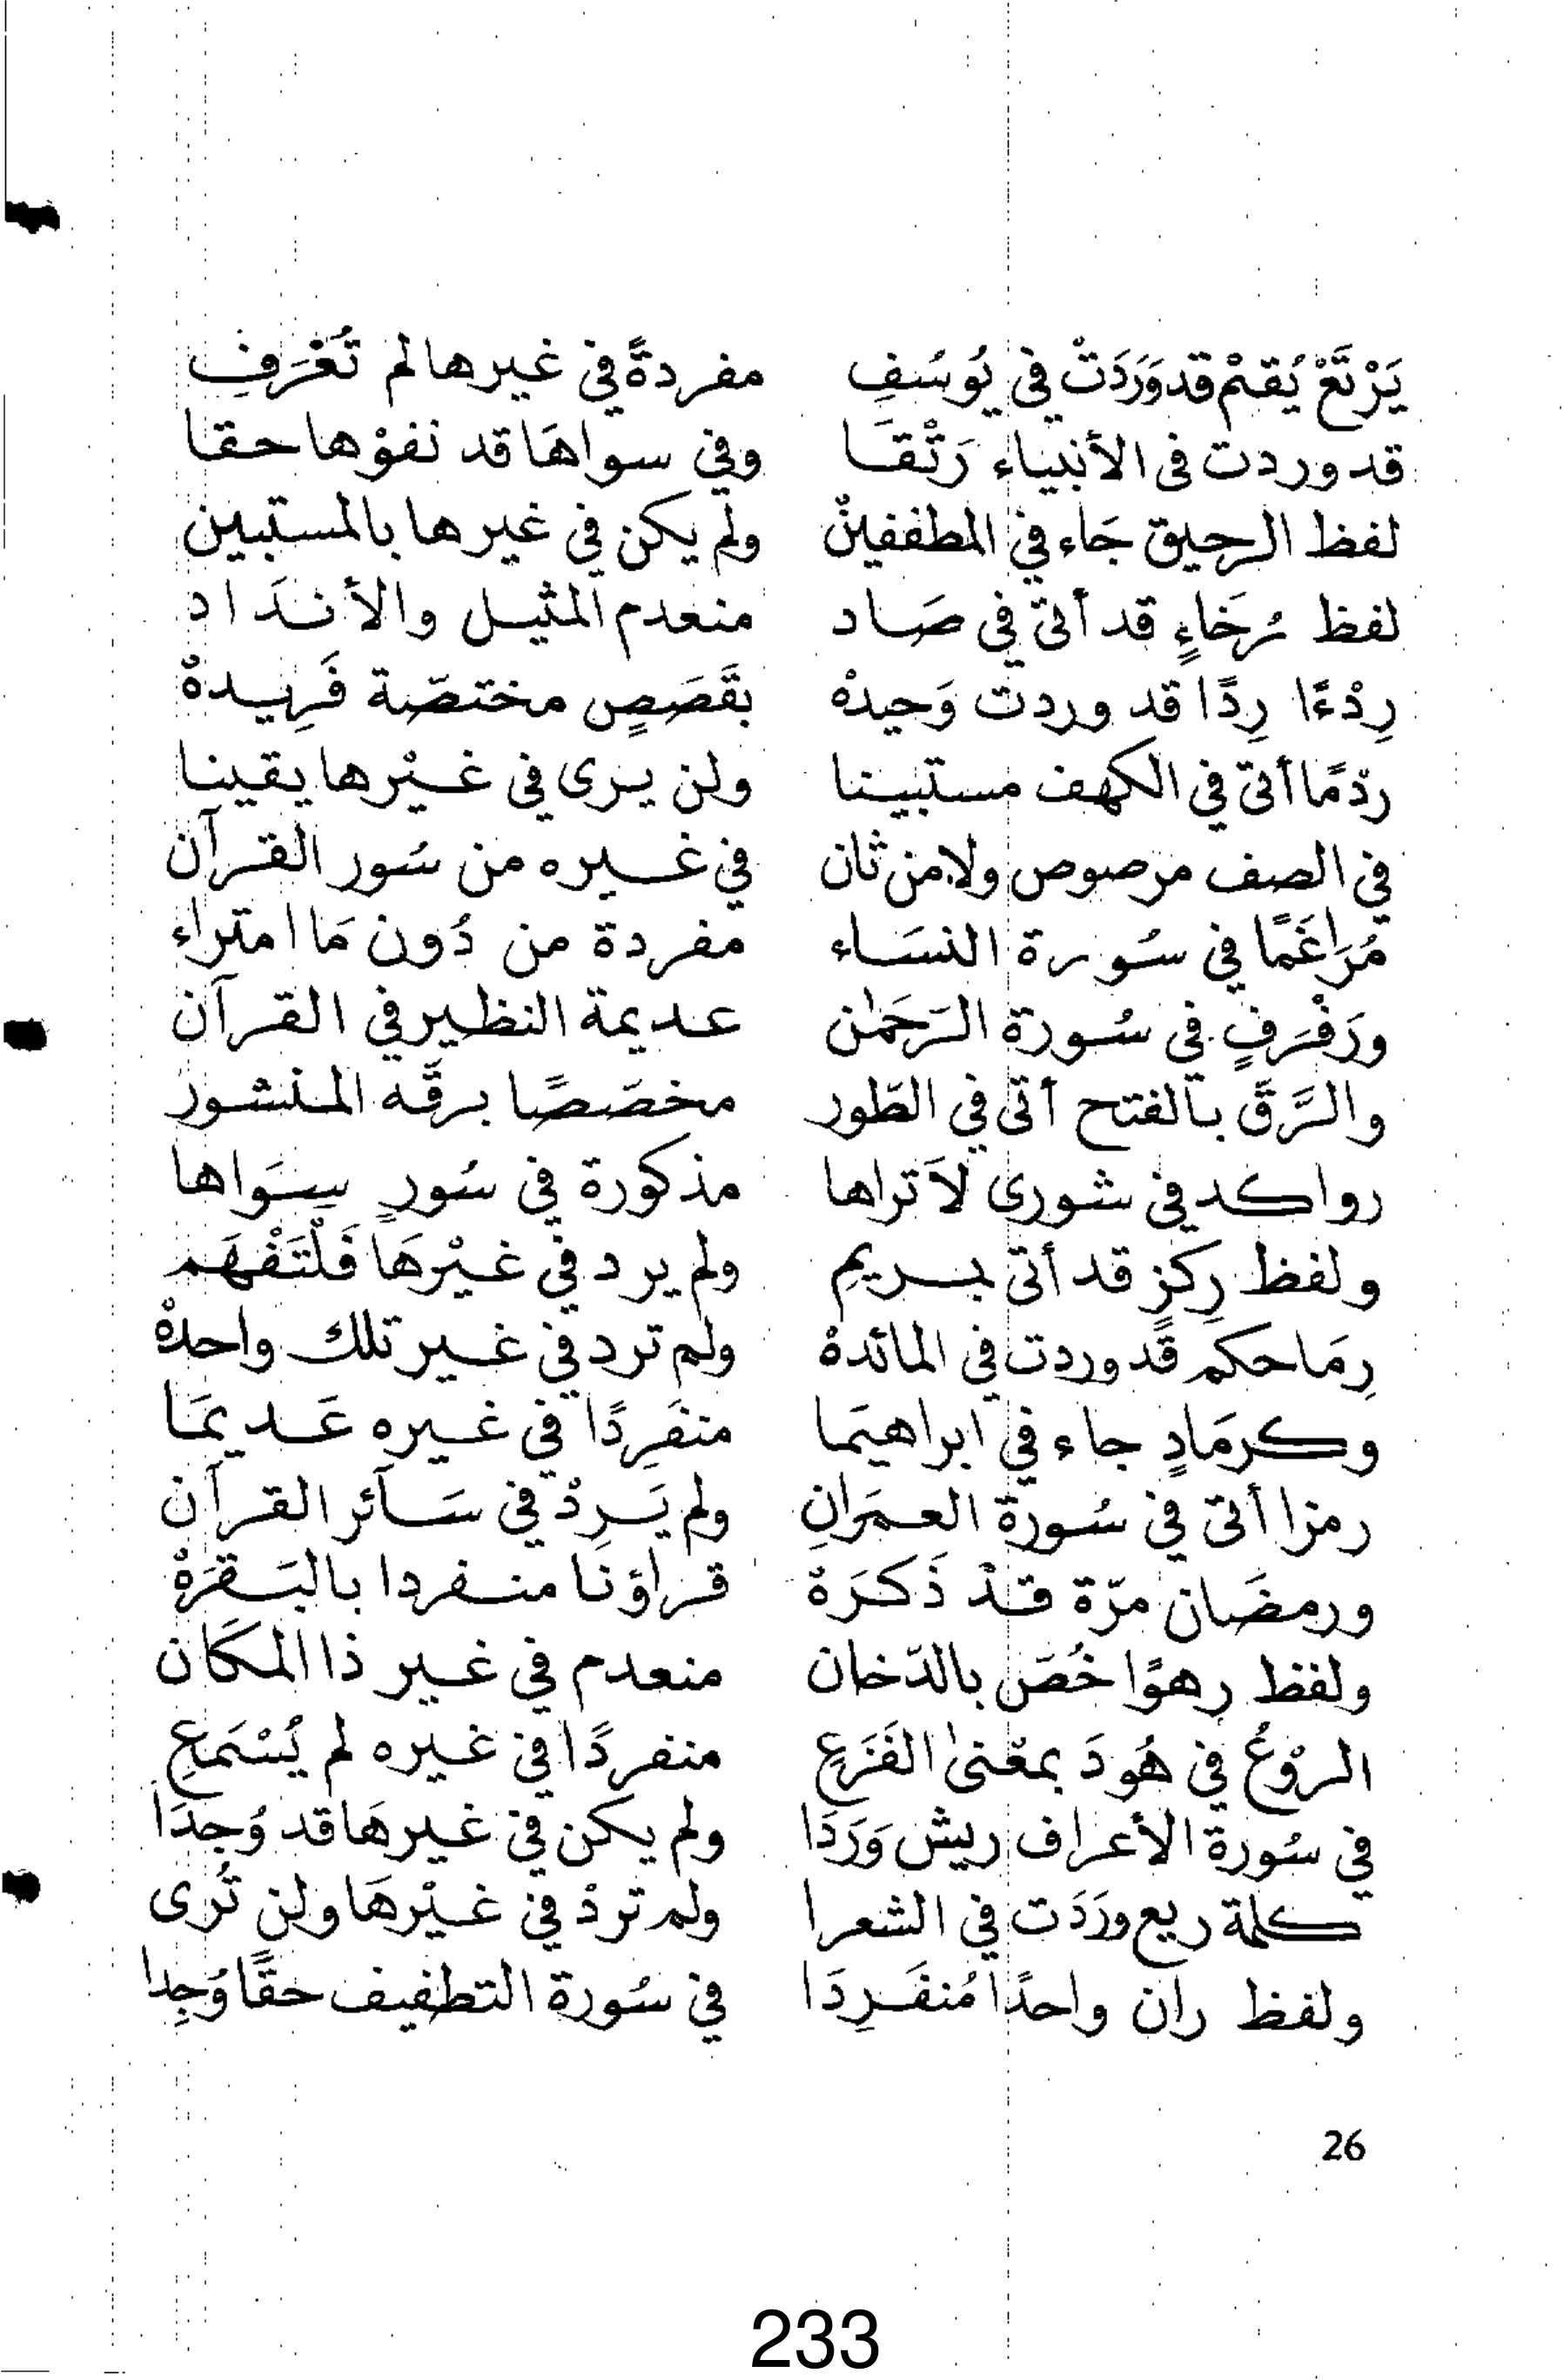 يَرْتَعْ يُقِمْ قد وَرَدَتْ في يُوسُفِ مفردةً في غيرها لم تُعْرَفِ
قد وردت فى الأنبياء رَتْقَا وفي سواهَا قد نفوْها حقا
لفظ الرحيق جَاء في المطففينْ ولم يكن في غيرها بالمستبين
لفظ رُخَاءٍ قد أتى في صَاد منعدم المثيل والأندَاد
رِدْءًا رِدًا قد وردت وَحيدهْ بقَصَصٍ مختصّة فَرِيدهْ
ردْمًا أتى في الكهف مستبينا ولن يرى في غيْرها يقينا
في الصف مرصوص ولا من ثان في غيره من سُور القرآن
مُرَاغَمًا في سُورة النسَاء مفردة من دُون مَا امتراء
ورَفْرَفٍ في سُورة الرَحمٰن عديمة النظير في القرآن
والرَّقّ بالفتح أتى في الطّور مخصّصًا برقّه المنشور
رواكد في شورى لاَ تراها مذكورة في سُورٍ سِوَاها
ولفظ رِكزٍ قد أتى بمريمِ ولم يرد في غيْرهَا فَلْتَفْهَم
رِمَاحكم قد وردت في المائدهْ ولم ترد في غير تلك واحدهْ
وكرمَادٍ جاء في ابراهيمَا منفَرِدًا في غيره عَديمَا
رمزا أتى في سُورة العمرَانِ ولم يَرِدْ في سَآئر القرآن
ورمضَان مرّة قدْ ذَكرَهْ قراؤنا منفردا بالبَقرَهْ
ولفظ رهوًا خُصّ بالدّخان منعدم في غير ذا المكَان
الروْعُ في هُودَ بمعْنىٰ الفَزَعِ منفردًا في غيره لم يُسْمَعِ
في سُورة الأعراف ريش وَرَدَا ولم يكن في غيرهَا قد وُجدَا
كلمة ريع ورَدَت في الشعرا ولم تردْ في غيْرهَا ولن تُرى
ولفظ ران واحدًا مُنفَرِدَا في سُورة التطفيف حقًا وُجِدا
26
233